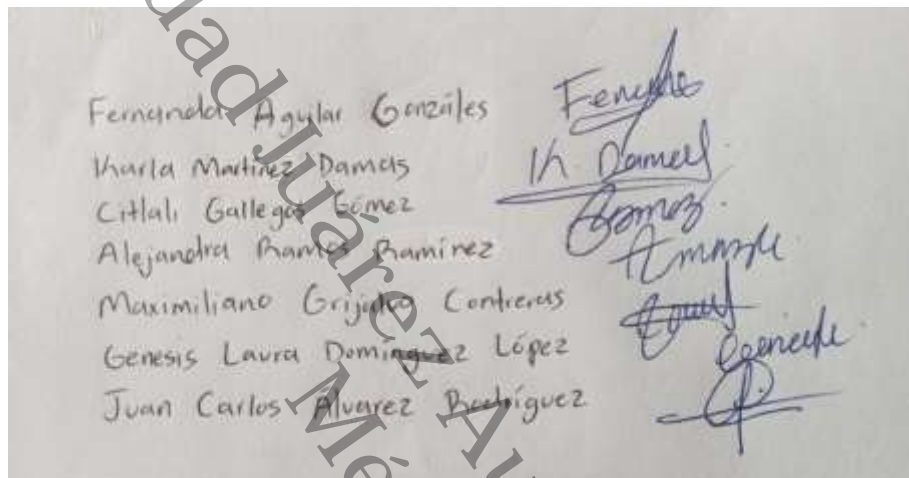 Fernanda Aguilar Gonzáles
Karla Martinez Damas
Citlali Gallegos Gómez
Alejandra Ramos Ramirez
Maximiliano Grijalva Contreras
Genesis Laura Domínguez López
Juan Carlos Alvarez Rodríguez
dad Juárez A
Mé